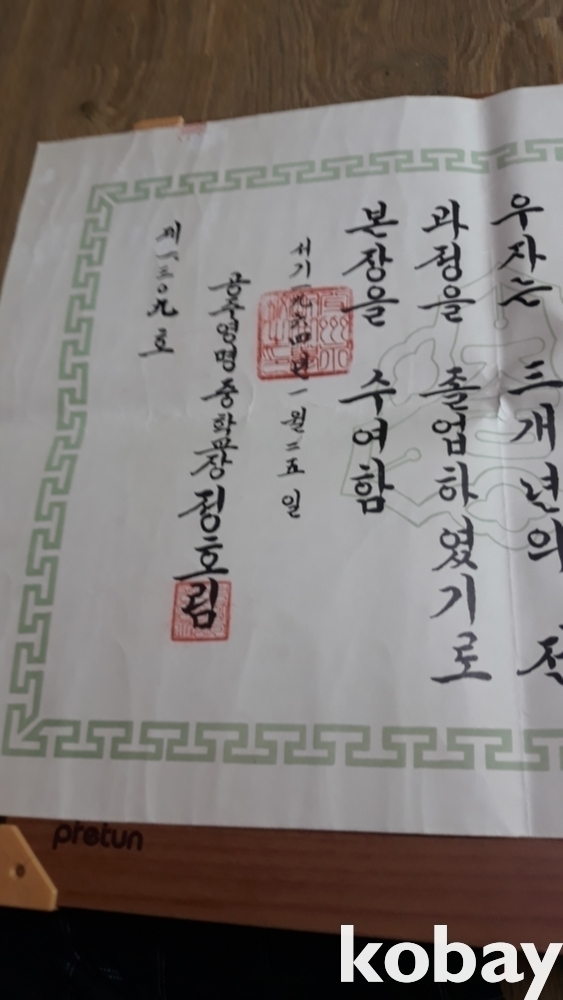 우자는 삼개년의 전
과정을 졸업하였기로
본장을 수여함
서기一九六四년一월二五일
공주영명중학교장 정호림
제一三０九호
pretun
kobay